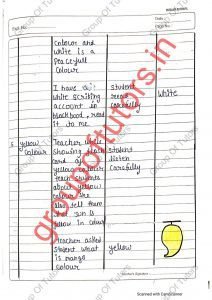 Date:
Page No.
colour and
white is a
peacefull
colour
I have a
white scribing
account in
blackboard, read
it to me
student
read
carefully
white
5 yellow
colour
Teacher while
showing flash
card of
yellow colour
teach students
about yellow
colour she
also tell them
that sun is
yellow in colour
student
listen
carefully
Teacher asked
student what
is mango
colour
yellow
Teacher's Signature
groupoftutors.in
Scanned with CamScanner